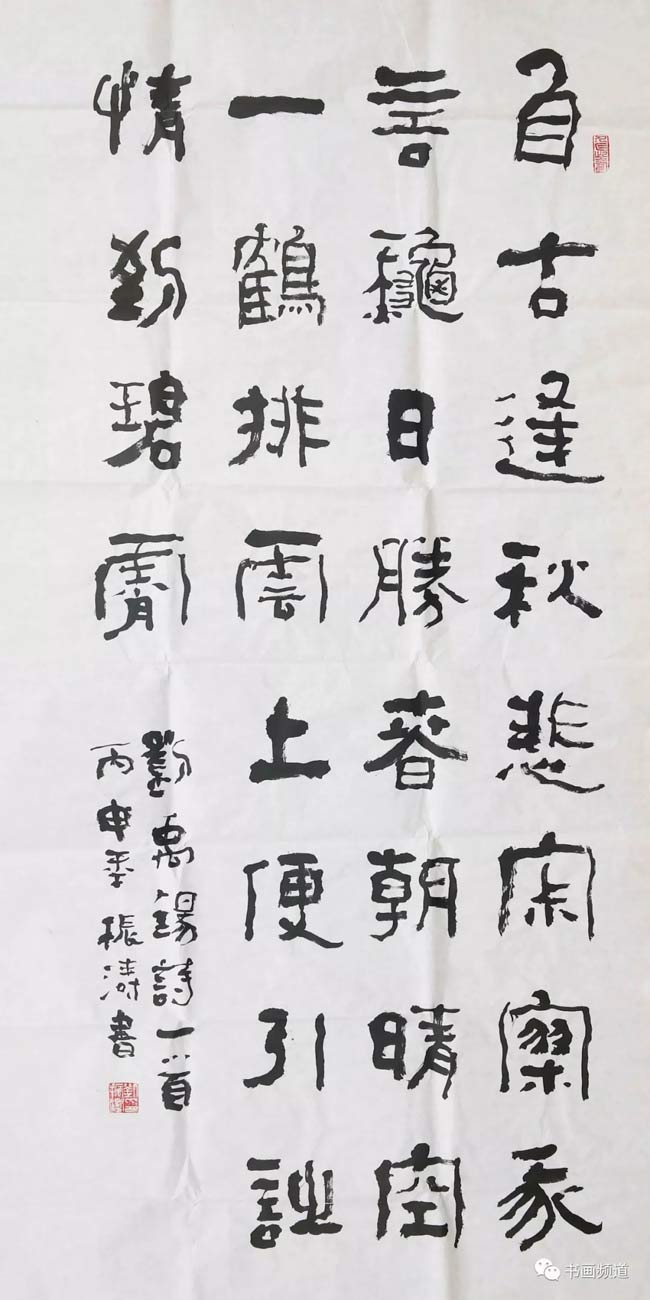 自古逢秋悲寂寥我
言龝日勝春朝晴空
一鶴排雲上便引詩
情到碧霄
劉禹錫詩一首
丙申秊振濤書
书画频道